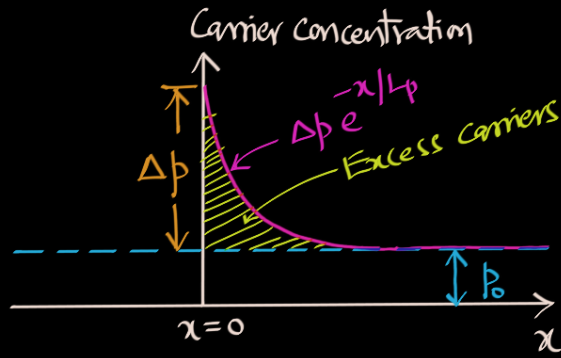 Carrier Concentration
Δp e^{-x/Lp}
Excess carriers
Δp
p₀
x=0
x